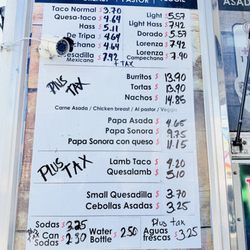 PASTOR
ASADA
Taco Normal $ 3.70
Light $ 5.57
Queso-taco $ 4.64
Light Hass $ 7.42
Hass $ 5.11
Dorado $ 5.57
De Tripa $ 4.64
Lorenza $ 7.42
$ 4.64
Lorenza
Campechano $ 7.90
Quesadilla
Mexicana $ 7.42
+ TAX
PLUS TAX
Burritos $ 13.90
Tortas $ 13.90
Nachos $ 14.85
Carne Asada / Chicken breast / Al pastor / Veggie
Papa Asada $ 4.65
Papa Sonora $ 9.75
Papa Sonora con queso $ 11.15
PLUS TAX
Lamb Taco $ 4.20
Quesalamb $ 5.10
Small Quesadilla $ 3.70
Cebollas Asadas $ 3.25
Plus tax
Sodas $ 3.25
Can Sodas $ 2.30
Water Bottle $ 2.50
Aguas frescas $ 3.25